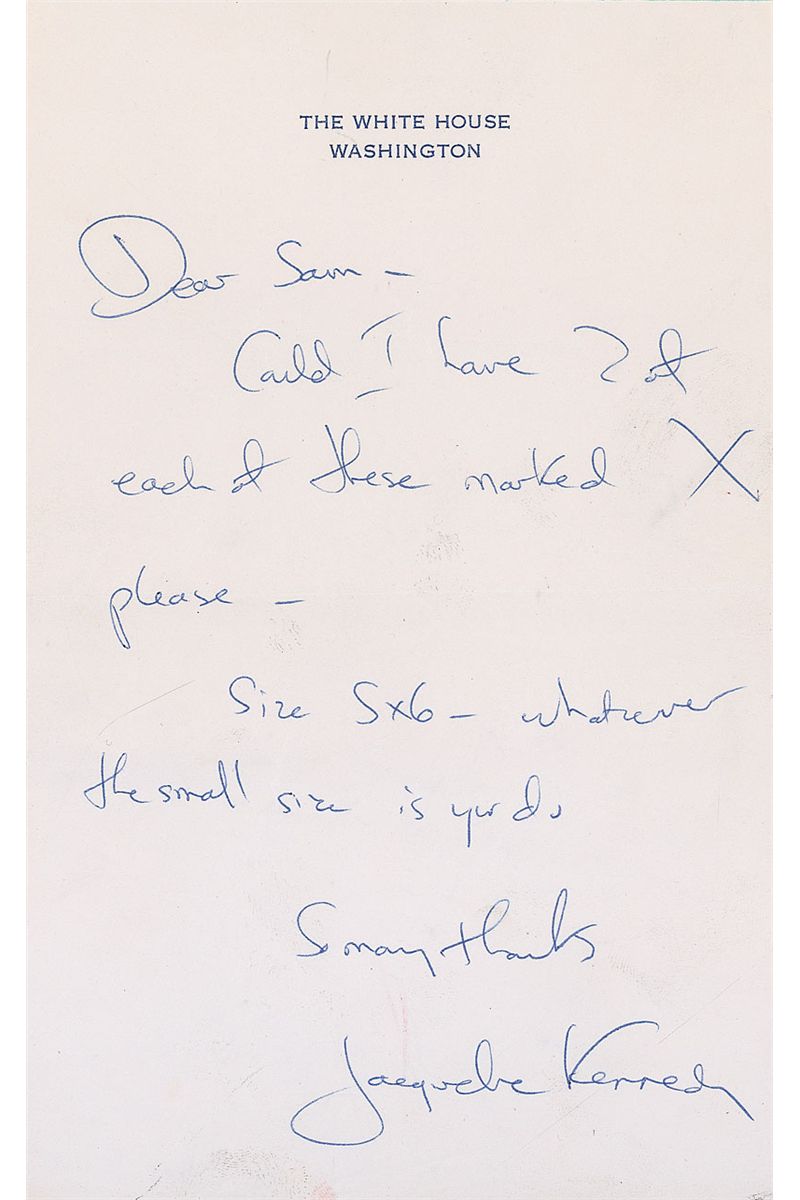 THE WHITE HOUSE
WASHINGTON
Dear Sam –
Could I have 2 of
each of these marked X
please –
Size 5x6 – whatever
the small size is you do
So many thanks
Jacqueline Kennedy